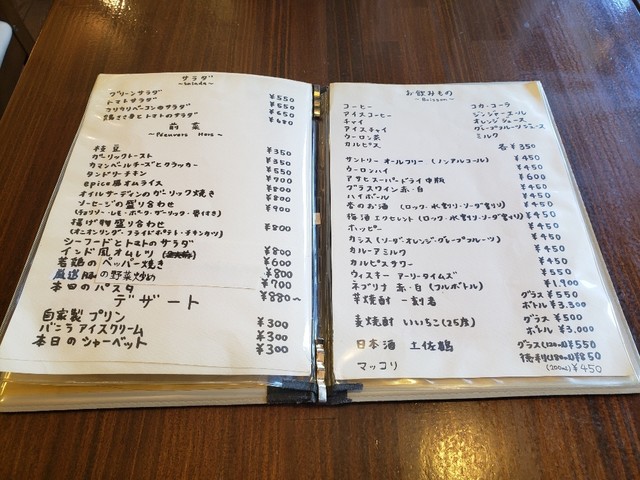 サラダ
~Salada~
グリーンサラダ ¥550
トマトサラダ ¥550
カリカリベーコンのサラダ ¥650
¥680
前菜
枝豆 ¥350
ガーリックトースト ¥350
カマンベールチーズとクラッカー
タンドリーチキン
epice風オムライス
オイルサーディンのガーリック焼き
ソーセージの盛り合わせ ¥900
(チョリソー・レモ・ポーク・ガーリック・骨付き)
揚げ物盛り合わせ ¥800
(オニオンリング・フライドポテト・チキンカツ)
シーフードとトマトのサラダ
インド風オムレツ ¥800
若鶏のペッパー焼き ¥600
厳選豚の野菜炒め ¥800
本日のパスタ ¥700
¥880~
デザート
自家製プリン ¥300
バニラアイスクリーム ¥300
本日のシャーベット ¥300
お飲みもの
~Boisson~
コーヒー
アイスコーヒー
チャイ
アイスチャイ
ウーロン茶
カルピス
コカ・コーラ
ジンジャーエール
オレンジジュース
グレープフルーツジュース
ミルク
各¥350
サントリーオールフリー(ノンアルコール) ¥450
ウーロンハイ ¥450
アサヒスーパードライ中瓶 ¥600
グラスワイン赤・白 ¥450
ハイボール ¥450
杏のお酒(ロック・水割り・ソーダ割り) ¥450
梅酒エクセレント(ロック・水割り・ソーダ割り) ¥450
ホッピー ¥450
カシス(ソーダ・オレンジ・グレープフルーツ) ¥450
カルーアミルク ¥450
カルピスサワー ¥450
ウィスキー アーリータイムズ ¥550
ネブリナ 赤・白(フルボトル) ¥1,900
芋焼酎 一刻者 グラス¥550
ボトル¥3,000
麦焼酎 いいちこ(25度) グラス¥500
ボトル¥3,000
日本酒 土佐鶴 グラス(120ml)¥550
徳利(180ml)¥850
マッコリ (200ml)¥450